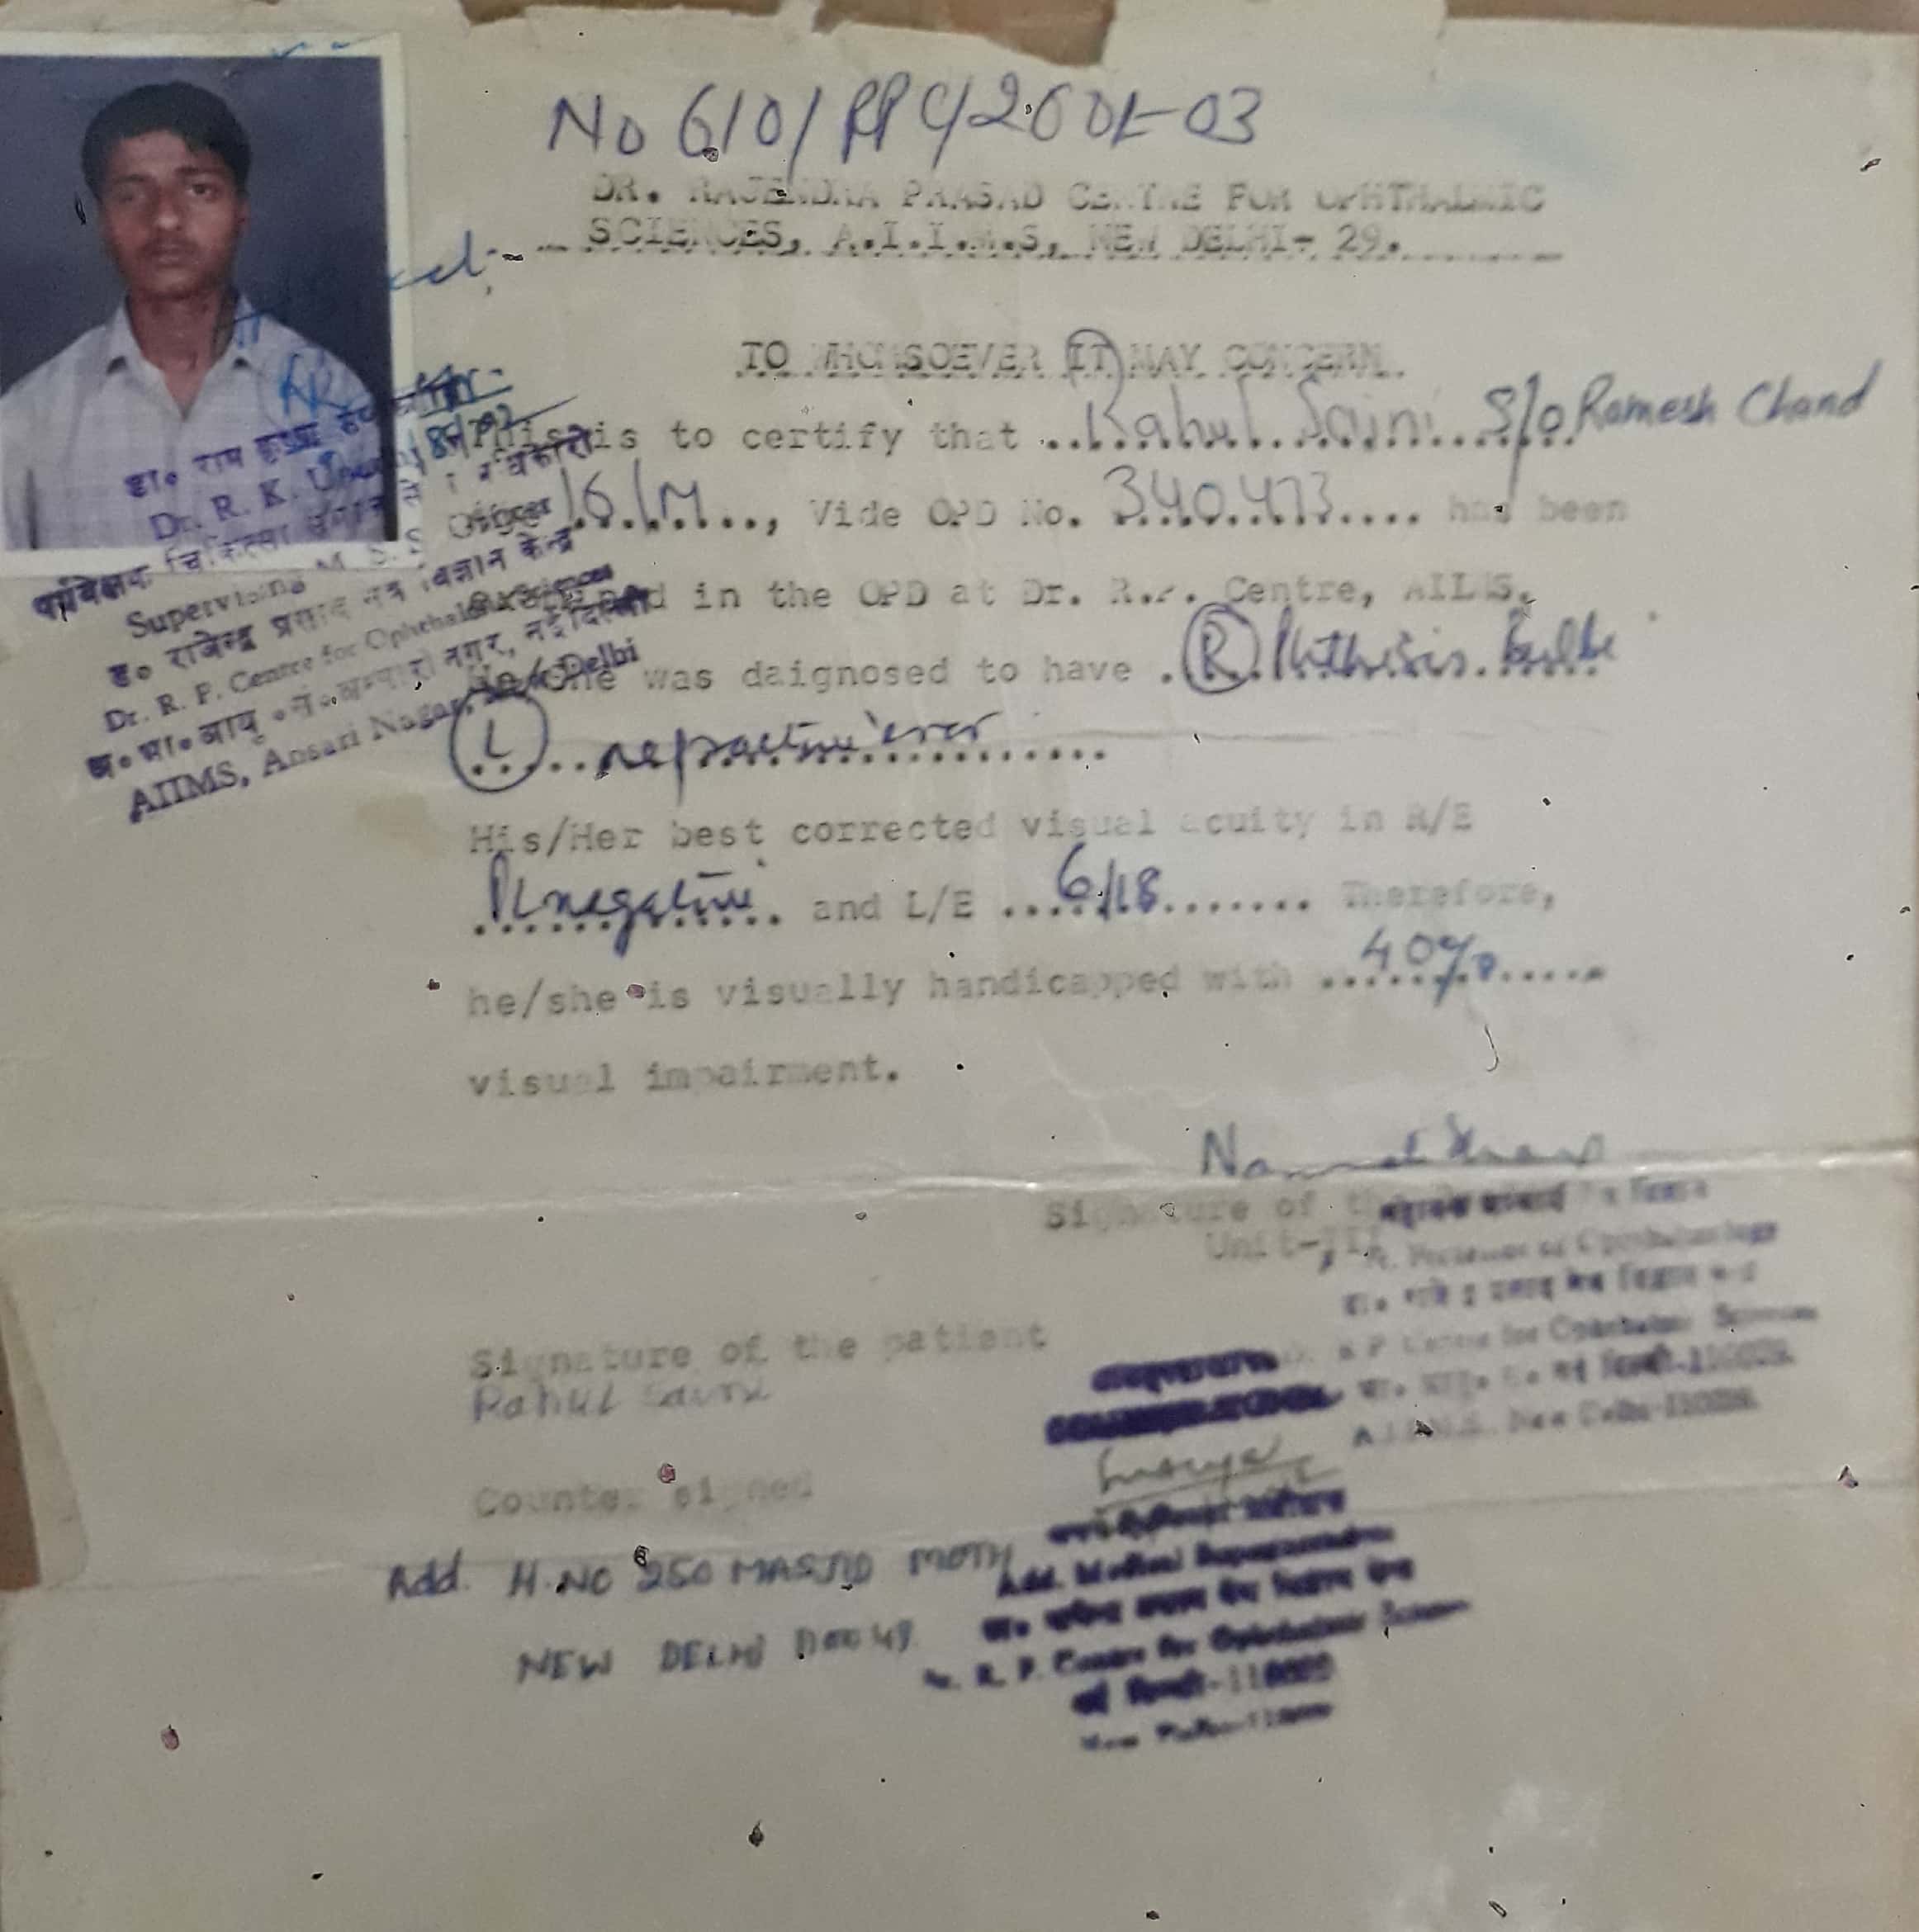 No 610/RPC/2001-03
DR. RAJENDRA PRASAD CENTRE FOR OPHTHALMIC
SCIENCES, A.I.I.M.S, NEW DELHI- 29.
TO WHOMSOEVER IT MAY CONCERN.
This is to certify that Rahul Saini S/o Ramesh Chand
16/M, Vide OPD No. 340473 has been
in the OPD at Dr. R.P. Centre, AIIMS.
He/She was daignosed to have (R) Phthisis Bulbi
(L) refractive error
His/Her best corrected visual acuity in R/E
PL negative and L/E 6/18 Therefore,
he/she is visually handicapped with 40%
visual impairment.
डा० राम
Dr. R. K.
पर्यवेक्षक चिकित्सा
Supervising M. S. S. Officer
डा० राजेन्द्र प्रसाद नेत्र विज्ञान केन्द्र
Dr. R. P. Centre for Ophthalmic Sciences
नगर, नई दिल्ली
AIIMS, Ansari Nagar, New Delhi
Signature of
Unit-III
of Ophthalmology
R P Centre for Ophthalmic Sciences
नई दिल्ली-110029.
A.I.I.M.S. New Delhi-110029.
Signature of the patient
Rahul Saini
Counter signed
Add. Medical Superintendent
R. P. Centre for Ophthalmic Sciences
नई दिल्ली-110029
New Delhi-110029
Add. H.NO 250 MASJID MOTH
NEW DELHI 110049